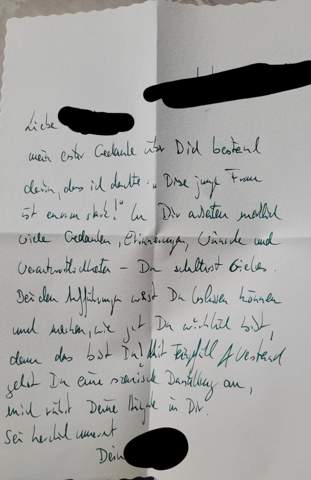 Liebe
mein erster Gedanke über Dich bestand
darin, dass ich dachte: „Diese junge Frau
ist enorm stark!" In Dir arbeiten unendlich
viele Gedanken, Erinnerungen, Wünsche und
Verantwortlichkeiten – Du schulterst Vieles.
Bei den Aufführungen wirst Du loslassen können
und merken, wie gut Du wirklich bist,
denn das bist Du! Mit Feingefühl & Verstand
gehst Du eine szenische Darstellung an,
mich rührt Deine in Dir.
Sei herzlich umarmt
Dein